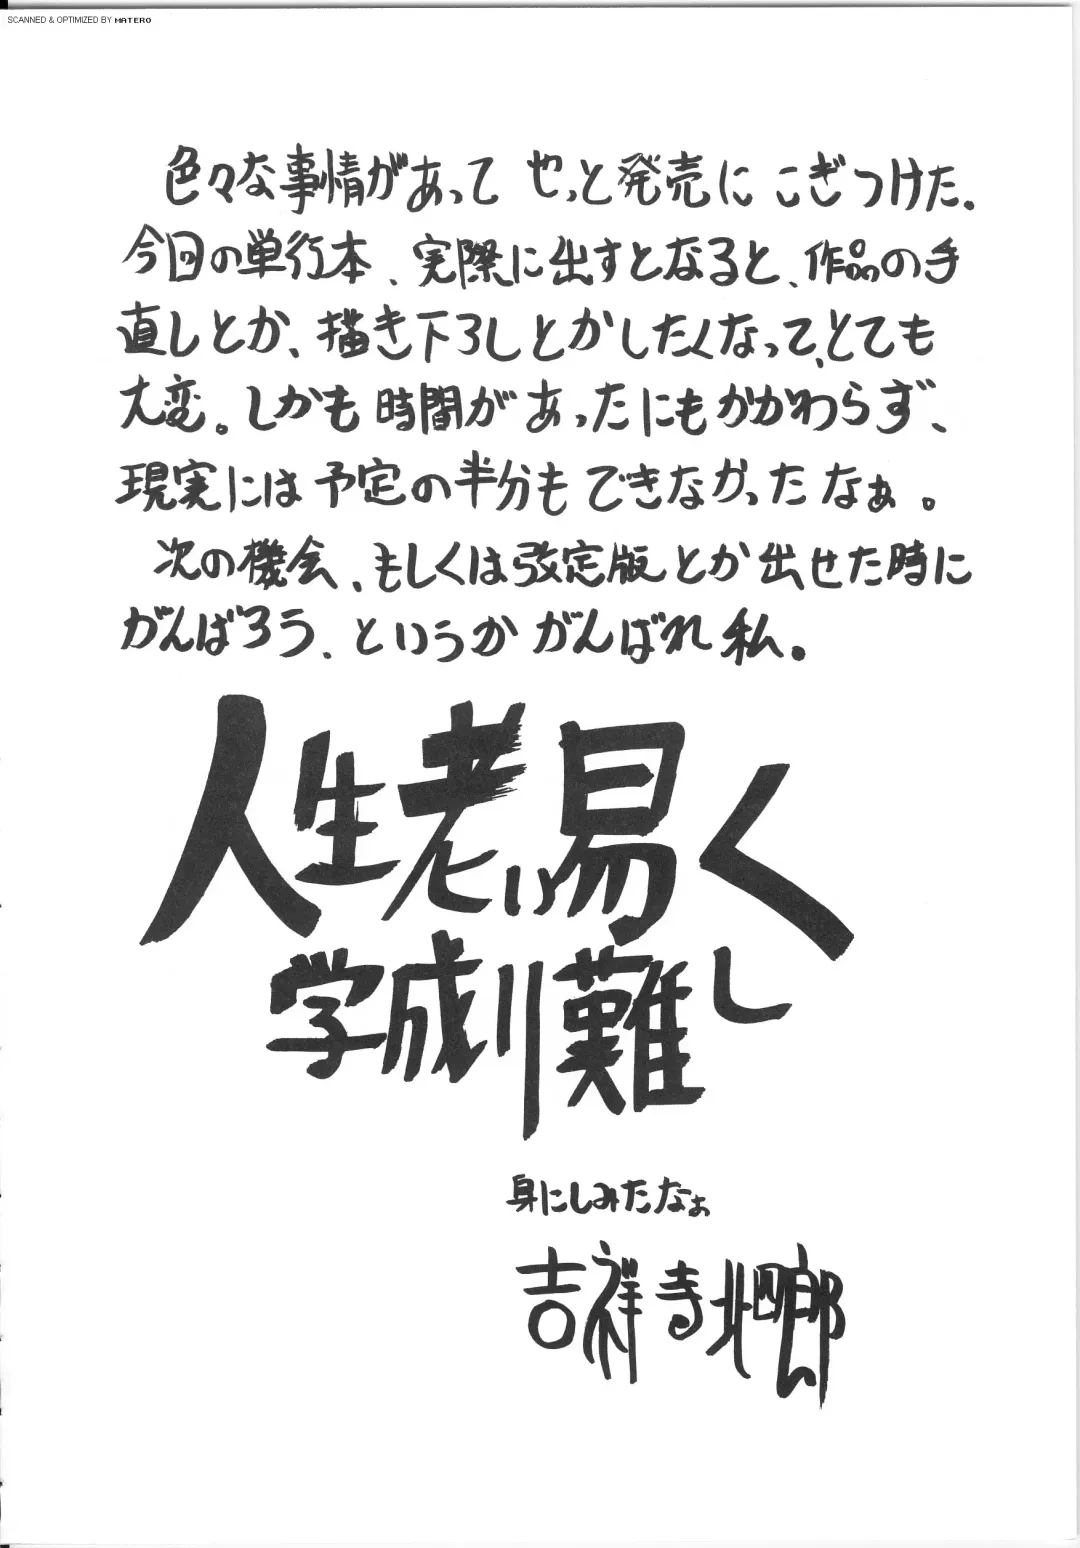 SCANNED & OPTIMIZED BY MATERO
色々な事情があって やっと発売に こぎつけた。
今回の単行本、実際に出すとなると、作品の手
直しとか、描き下ろしとかしたくなって、とても
大変。しかも時間があったにもかかわらず、
現実には予定の半分もできなかったなぁ。
次の機会、もしくは改定版とか出せた時に
がんばろう、というかがんばれ私。
人生老い易く
学成り難し
身にしみたなぁ
吉祥寺北四郎